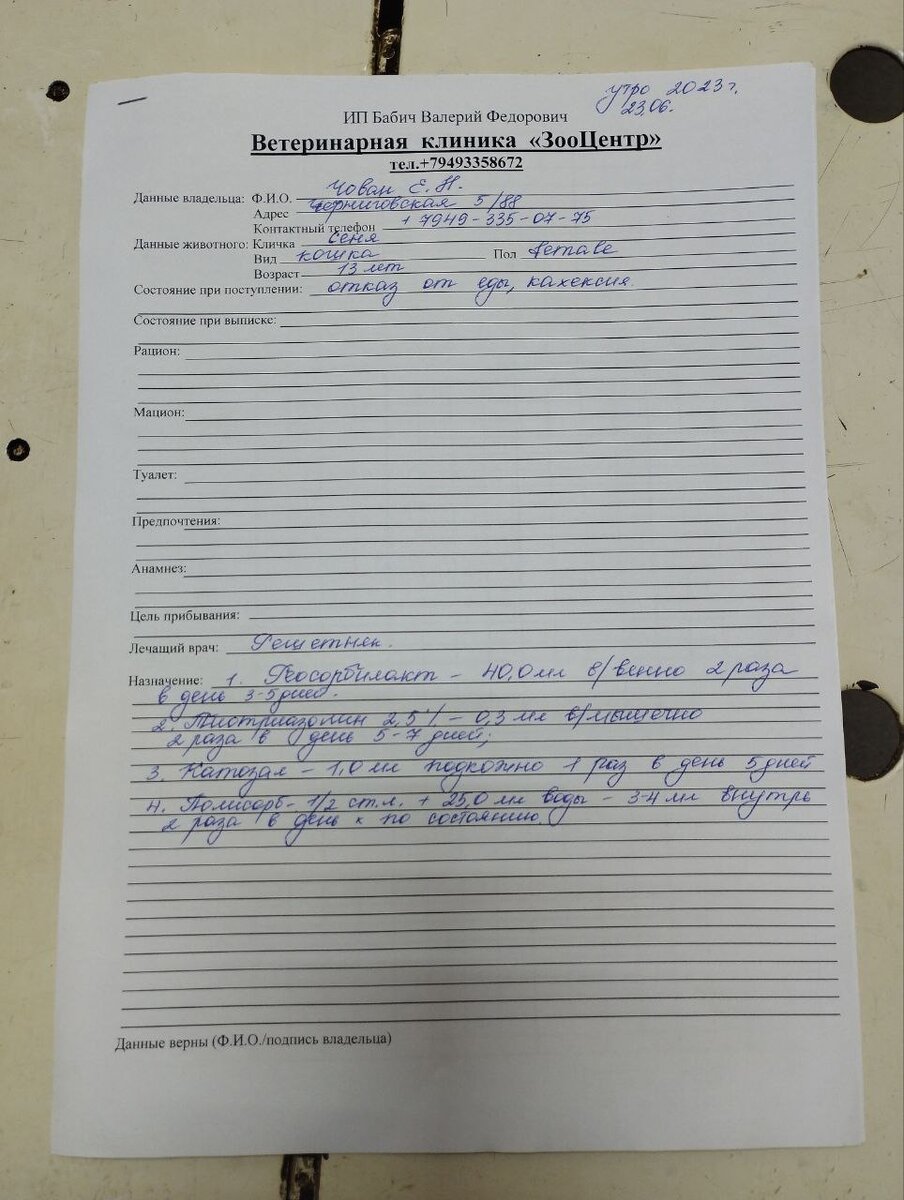 утро 2023 г.
23.06.
ИП Бабич Валерий Федорович
Ветеринарная клиника «ЗооЦентр»
тел.+79493358672
Данные владельца: Ф.И.О. Чован Е.Н.
Адрес Черниговская 5/88
Контактный телефон +7949-335-07-75
Данные животного: Кличка Сеня
Вид кошка Пол female
Возраст 13 лет
Состояние при поступлении: отказ от еды, кахексия.
Состояние при выписке:
Рацион:
Мацион:
Туалет:
Предпочтения:
Анамнез:
Цель прибывания:
Лечащий врач: Решетняк.
Назначение: 1. Реосорбилакт - 40,0 мл в/венно 2 раза
в день 3-5 дней.
2. Тиотриазолин 2,5% - 0,3 мл в/мышечно
2 раза в день 5-7 дней;
3. Катозал - 1,0 мл подкожно 1 раз в день 5 дней
4. Полисорб - 1/2 ст.л. + 25,0 мл воды - 3-4 мл внутрь
2 раза в день х по состоянию.
Данные верны (Ф.И.О./подпись владельца)